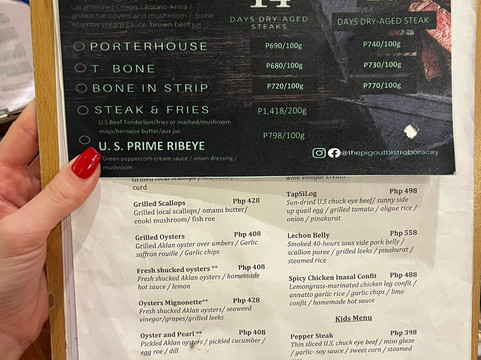 caramelized Onion / Potato Anna /
grilled haricovert and mushroom / bone
marrow cream sauce, brown beef jus
14
DAYS DRY-AGED
STEAKS
DAYS DRY-AGED STEAK
PORTERHOUSE P690/100g P740/100g
T- BONE P680/100g P730/100g
BONE IN STRIP P720/100g P770/100g
STEAK & FRIES P1,418/200g
U.S Beef Tenderloin/fries or mashed/mushroom
mojo/bernaise butter/aux jus
U. S. PRIME RIBEYE P798/100g
Green peppercorn cream sauce / onion dressing /
mushroom
@thepigoutbistroboracay
curd
Grilled Scallops Php 428
Grilled local scallops/ omami butter/
enoki mushroom/ fish roe
Grilled Oysters Php 408
Grilled Aklan oyster over ambers / Garlic
saffron rouille / Garlic chips
Fresh shucked oysters ** Php 408
Fresh shucked Aklan oysters / homemade
hot sauce / lemon
Oysters Mignonette** Php 428
Fresh shucked Aklan oysters/ seaweed
vinegar/grapes/grilled leeks
Oyster and Pearl ** Php 408
Pickled Aklan oysters / pickled cucumber /
egg roe / dill
TapSiLog Php 498
Sun-dried U.S chuck eye beef/ sunny side
up quail egg / grilled tomato / aligue rice /
onion / pinakurat
Lechon Belly Php 558
Smoked 40-hours sous vide pork belly /
scallion puree / grilled leeks / pinakurat /
steamed rice
Spicy Chicken Inasal Confit Php 488
Lemongrass-marinated chicken leg confit /
annatto garlic rice / garlic chips / lime
confit / homemade hot sauce
Kids Menu
Pepper Steak Php 398
Thin sliced U.S. chuck eye beef / miso glaze
/ garlic- soy sauce / sweet corn / steamed